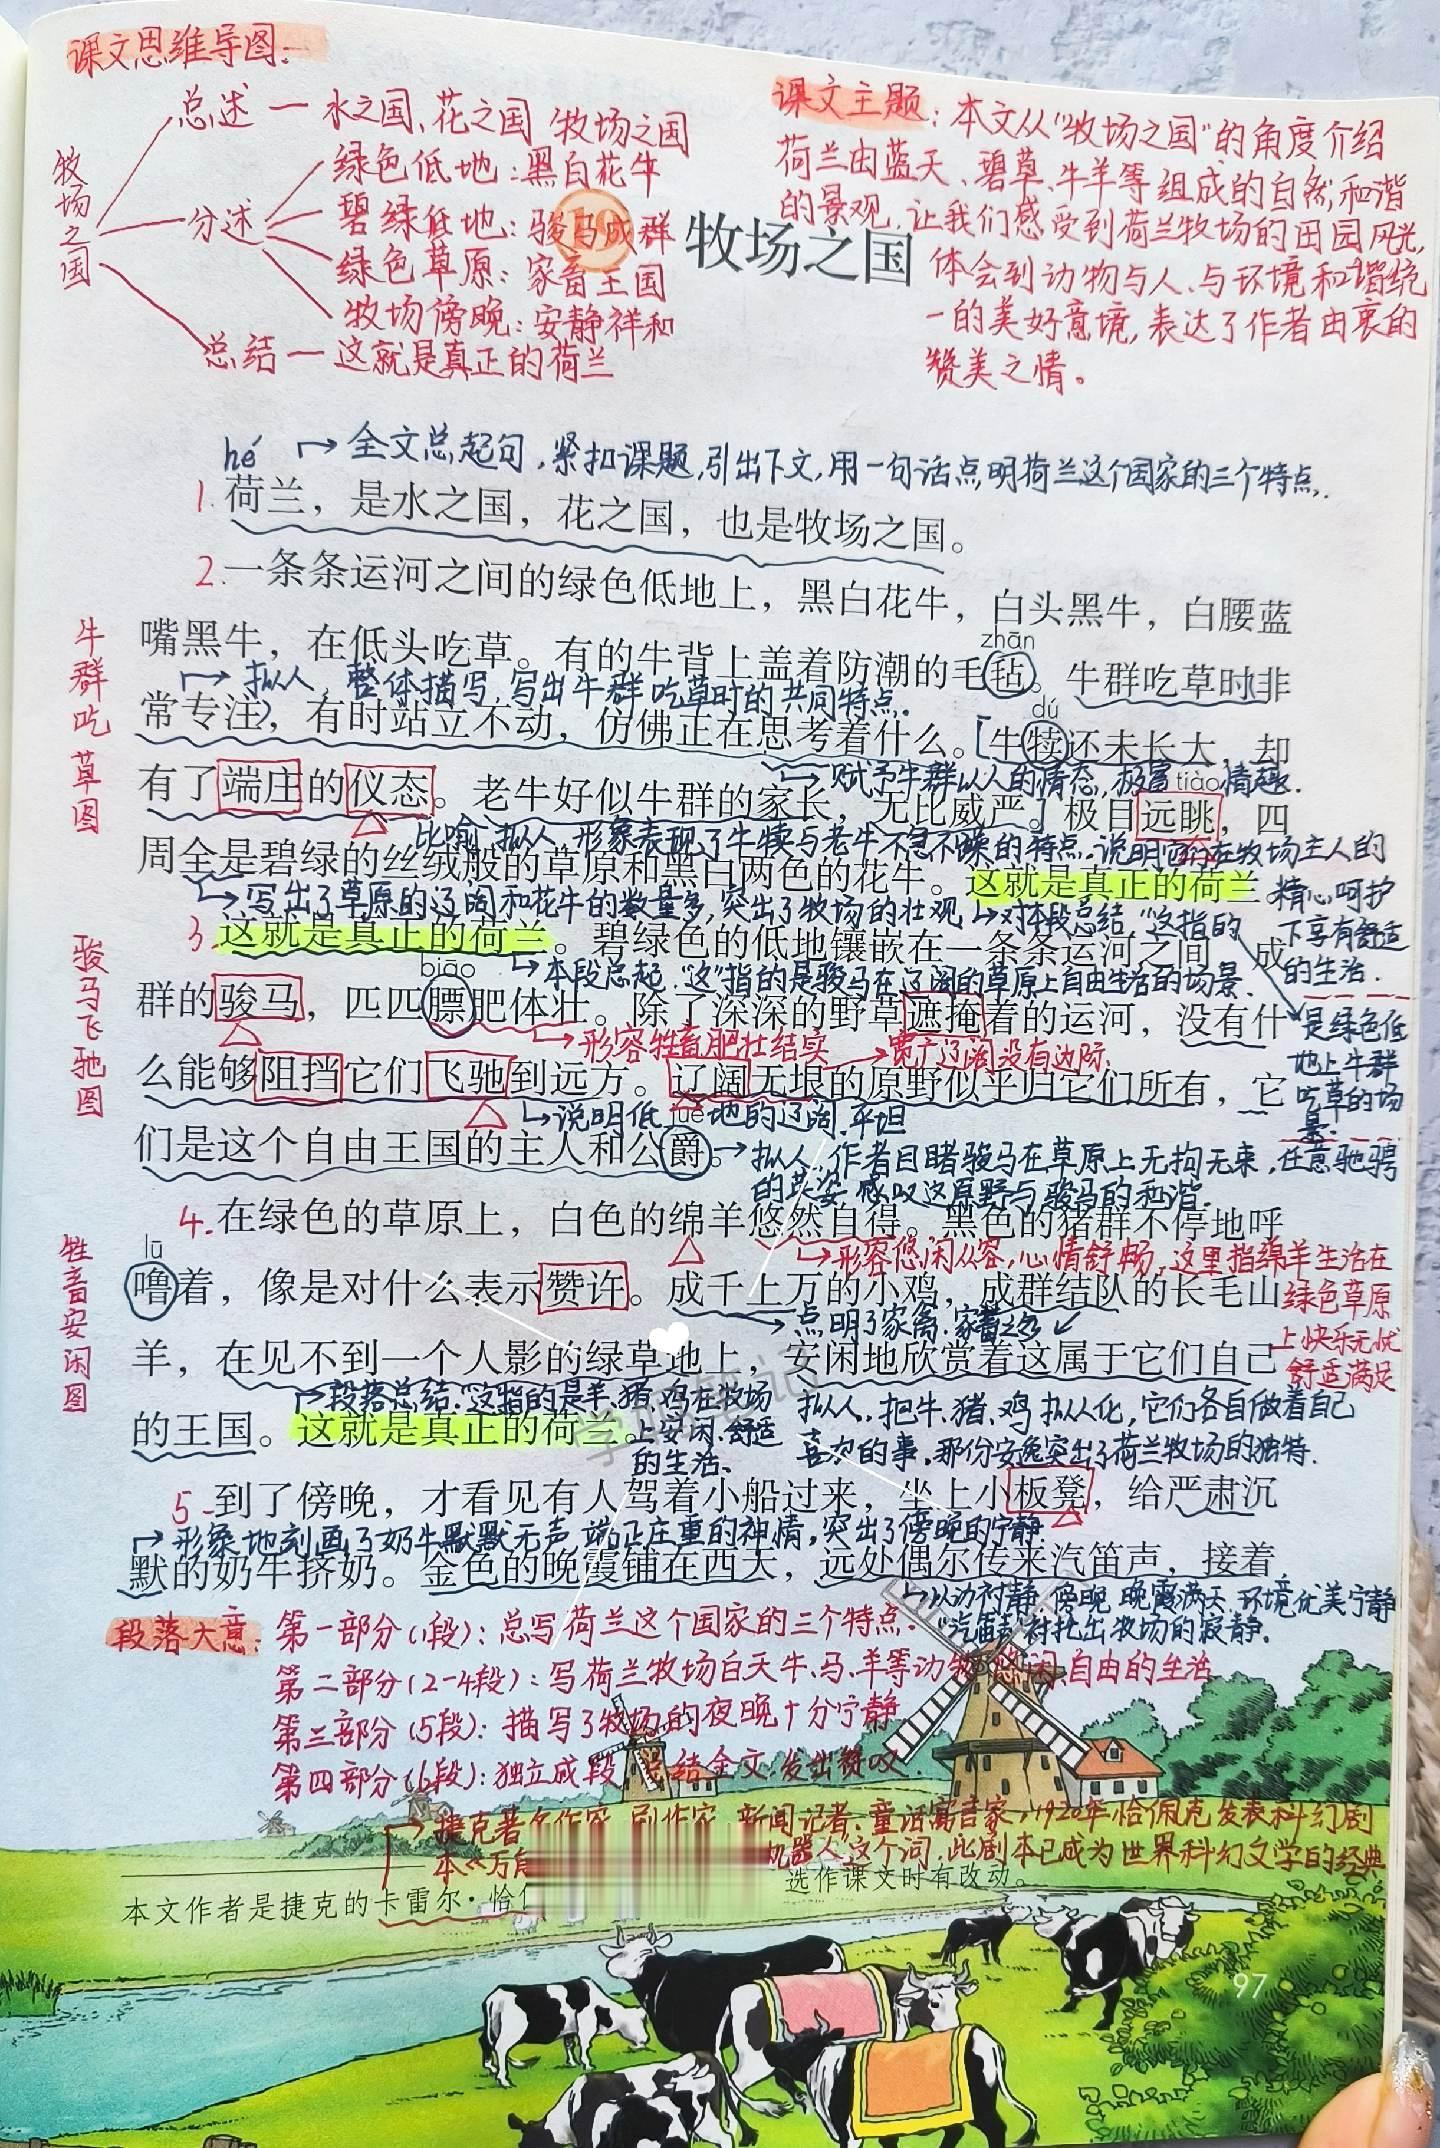 课文思维导图:
牧场之国
总述一水之国、花之国 牧场之国
分述
绿色低地:黑白花牛
碧绿低地:骏马成群
绿色草原:家畜王国
牧场傍晚:安静祥和
总结一这就是真正的荷兰
课文主题:本文从"牧场之国"的角度介绍
荷兰由蓝天、碧草、牛羊等组成的自然,和谐
的景观,让我们感受到荷兰牧场的田园风光,
体会到动物与人、与环境和谐统
一的美好意境,表达了作者由衷的
赞美之情。
19 牧场之国
hé
全文总起句,紧扣课题,引出下文,用一句话点明荷兰这个国家的三个特点.
1.荷兰,是水之国,花之国,也是牧场之国。
2.一条条运河之间的绿色低地上,黑白花牛,白头黑牛,白腰蓝
zhān
嘴黑牛,在低头吃草。有的牛背上盖着防潮的毛毡。牛群吃草时非
拟人,整体描写,写出牛群吃草时的共同特点.
dú
常专注,有时站立不动,仿佛正在思考着什么。[牛犊还未长大,却
赋予牛群以人的情态,极富情趣.
tiào
有了端庄的仪态。老牛好似牛群的家长,无比威严。]极目远眺,四
比喻、拟人 形象表现了牛犊与老牛不急不躁的特点.说明它们在牧场主人的
精心呵护
下享有舒适
的生活.
周全是碧绿的丝绒般的草原和黑白两色的花牛。这就是真正的荷兰。
写出了草原的辽阔和花牛的数量多,突出了牧场的壮观
对本段总结"这指的
是绿色低
地上牛群
吃草的场
景.
牛群吃草图
3.这就是真正的荷兰。碧绿色的低地镶嵌在一条条运河之间,成
biāo
本段总起."这"指的是骏马在辽阔的草原上自由生活的场景.
群的骏马,匹匹膘肥体壮。除了深深的野草遮掩着的运河,没有什
形容牲畜肥壮结实
宽广辽阔没有边际.
么能够阻挡它们飞驰到远方。辽阔无垠的原野似乎归它们所有,它
jué
说明低地的辽阔.平坦
们是这个自由王国的主人和公爵。
拟人,作者目睹骏马在草原上无拘无束,任意驰骋
的英姿 感叹这原野与骏马的和谐.
骏马飞驰图
4.在绿色的草原上,白色的绵羊悠然自得。黑色的猪群不停地呼
lū
形容悠闲从容,心情舒畅,这里指绵羊生活在
绿色草原
上快乐无忧
舒适满足
噜着,像是对什么表示赞许。成千上万的小鸡,成群结队的长毛山
点明了家禽.家畜之多
羊,在见不到一个人影的绿草地上,安闲地欣赏着这属于它们自己
段落总结."这指的是羊、猪、鸡在牧场
上安闲、舒适
的生活、
的王国。这就是真正的荷兰。
拟人,把牛、猪、鸡拟人化,它们各自做着自己
喜欢的事。那份安逸突出了荷兰牧场的独特.
牲畜安闲图
学霸笔记
5.到了傍晚,才看见有人驾着小船过来,坐上小板凳,给严肃沉
形象地刻画了奶牛默默无声 端正庄重的神情,突出了傍晚的宁静
默的奶牛挤奶。金色的晚霞铺在西天,远处偶尔传来汽笛声,接着
以动衬静 傍晚 晚霞满天 环境优美宁静
"汽笛声"衬托出牧场的寂静.
段落大意:第一部分(1段):总写荷兰这个国家的三个特点.
第二部分(2-4段):写荷兰牧场白天牛、马、羊等动物悠闲自由的生活
第三部分(5段):描写了牧场的夜晚十分宁静
第四部分(6段):独立成段,总结全文.发出赞叹.
捷克著名作家 剧作家 新闻记者.童话寓言家,1920年恰佩克发表科幻剧
本《万能 机器人"这个词,此剧本已成为世界科幻文学的经典
本文作者是捷克的卡雷尔·恰 选作课文时有改动。
97